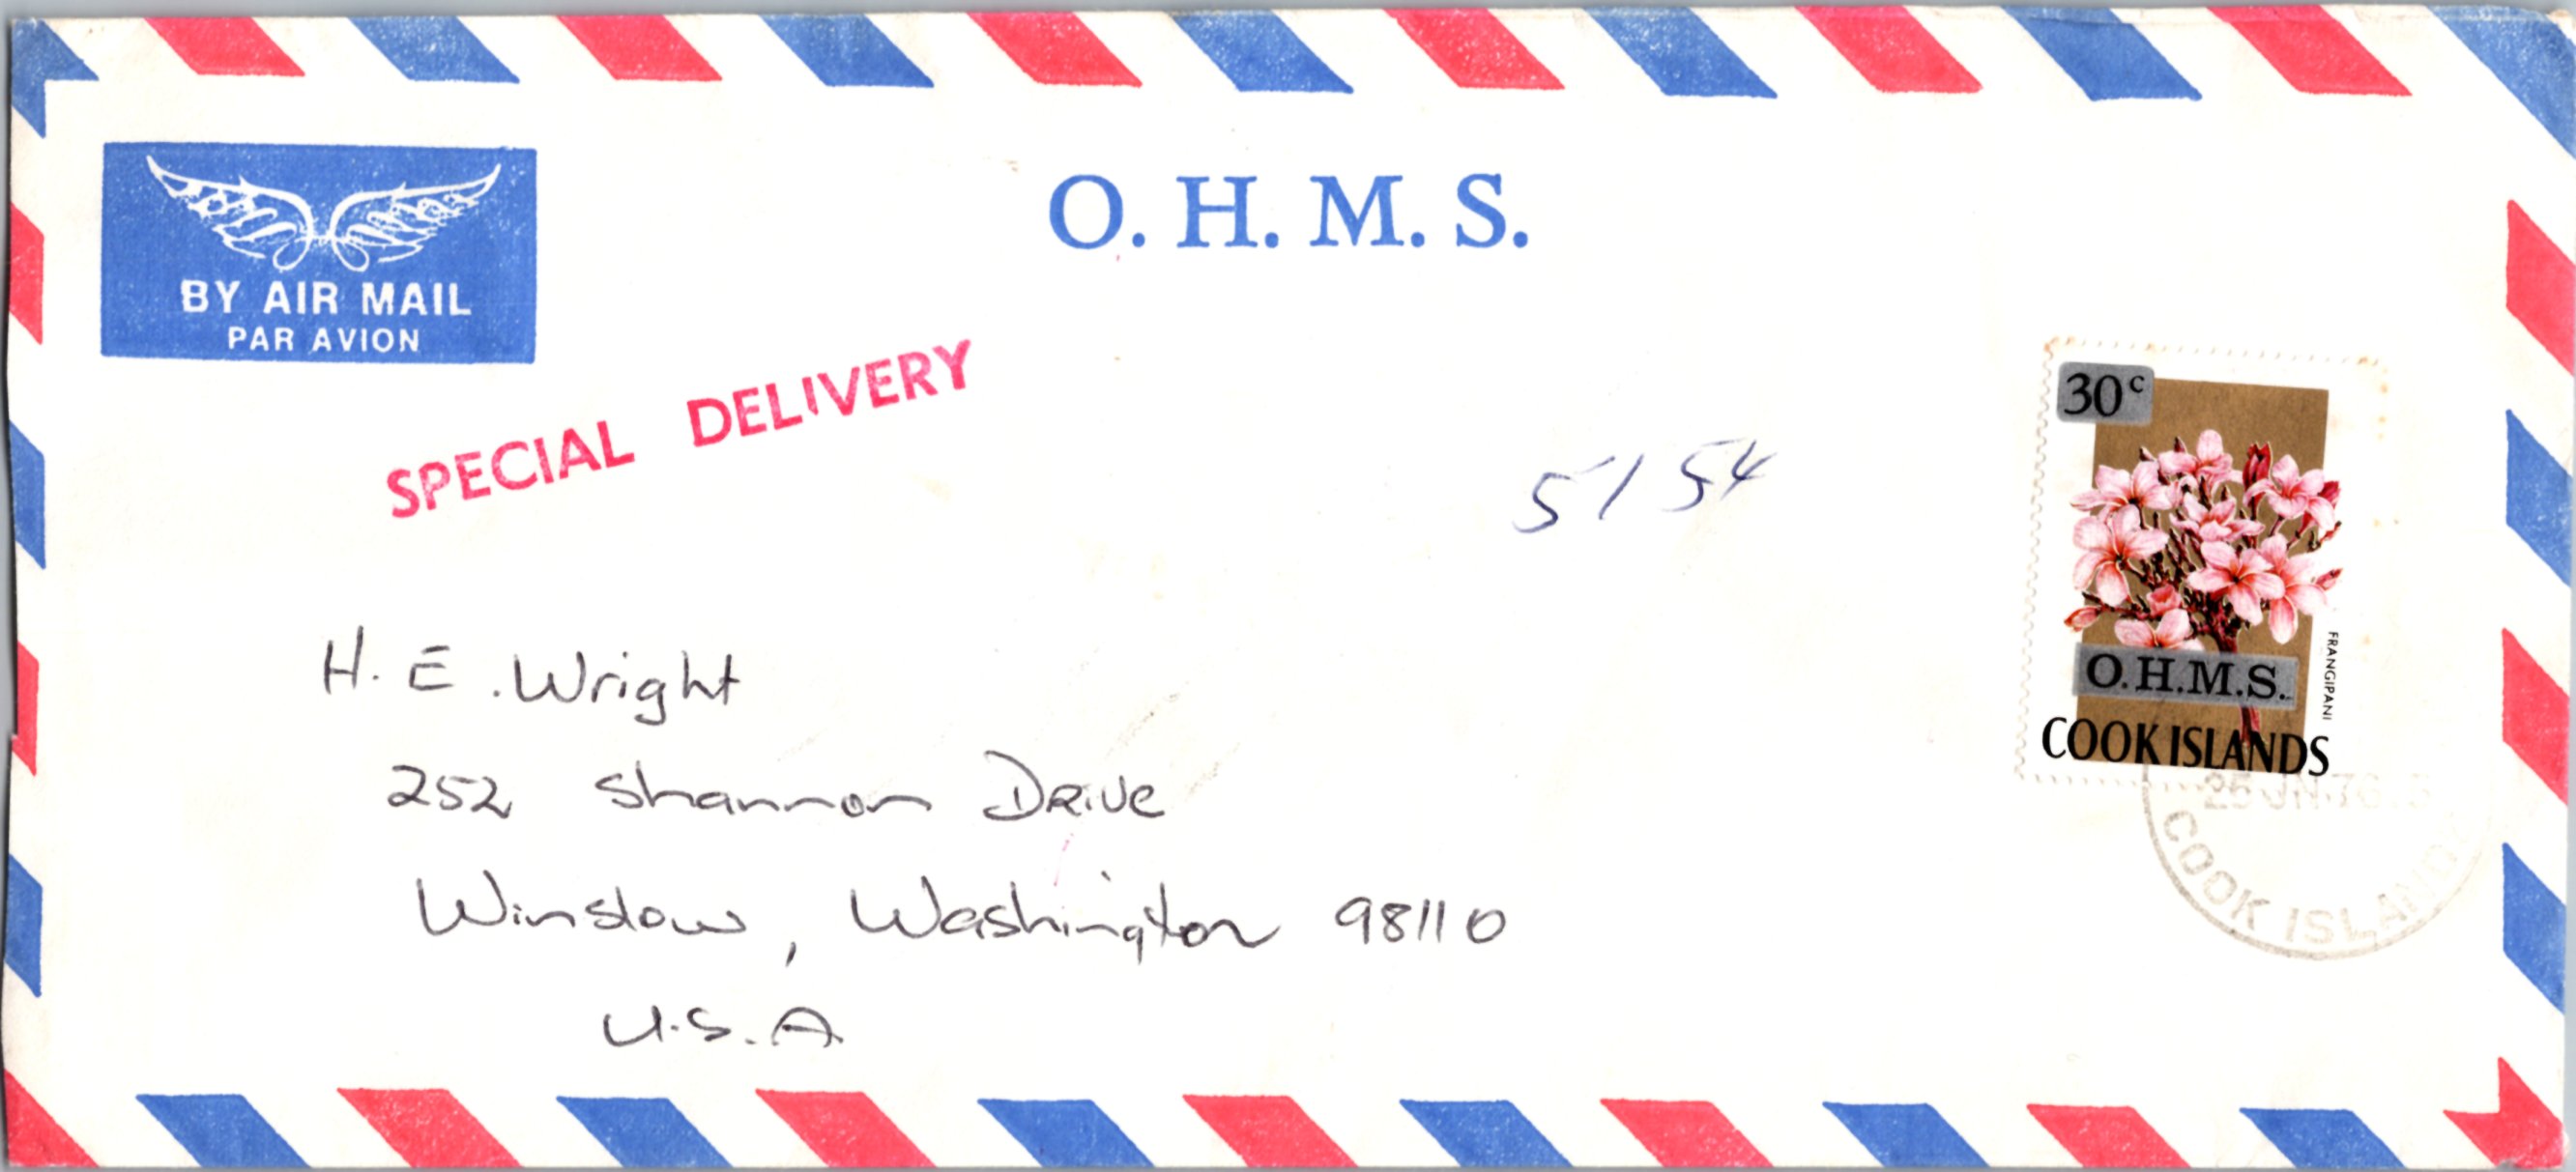 O. H. M. S.
BY AIR MAIL
PAR AVION
SPECIAL DELIVERY
5154
30c
FRANGIPANI
O.H.M.S.
COOK ISLANDS
COOK ISLANDS
H. E. Wright
252 Shannon Drive
Winslow, Washington 98110
U.S.A